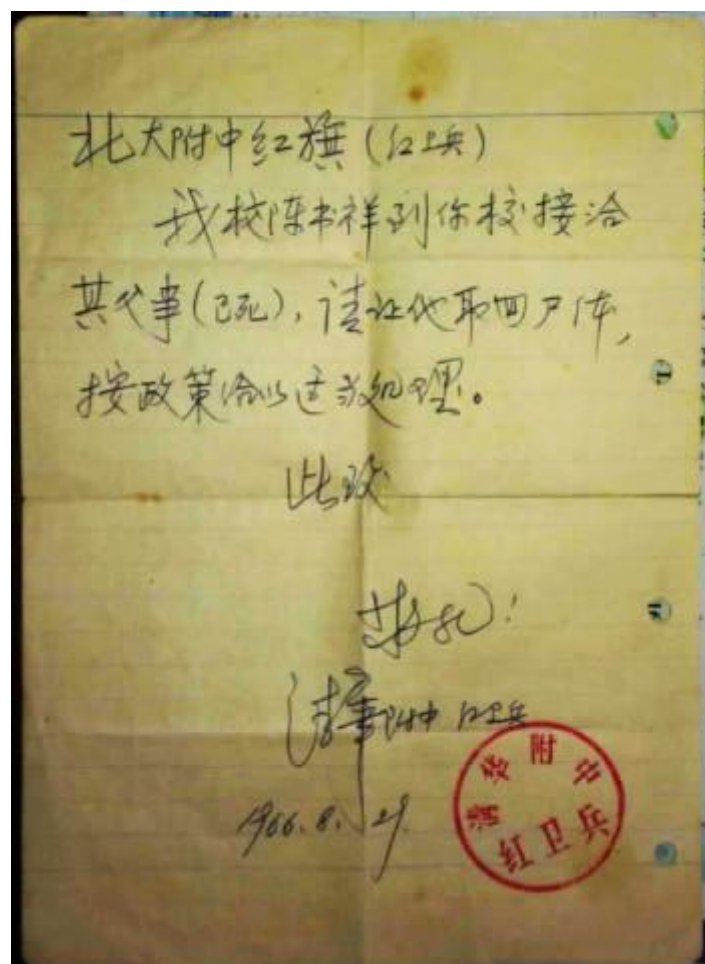 北大附中红旗(红卫兵)
我校陈书祥到你校接洽
其父事(已死),请让他取回尸体,
按政策给以适当处理。
此致
敬礼!
清华附中 红卫兵
1966.8.29.
清华附中
红卫兵